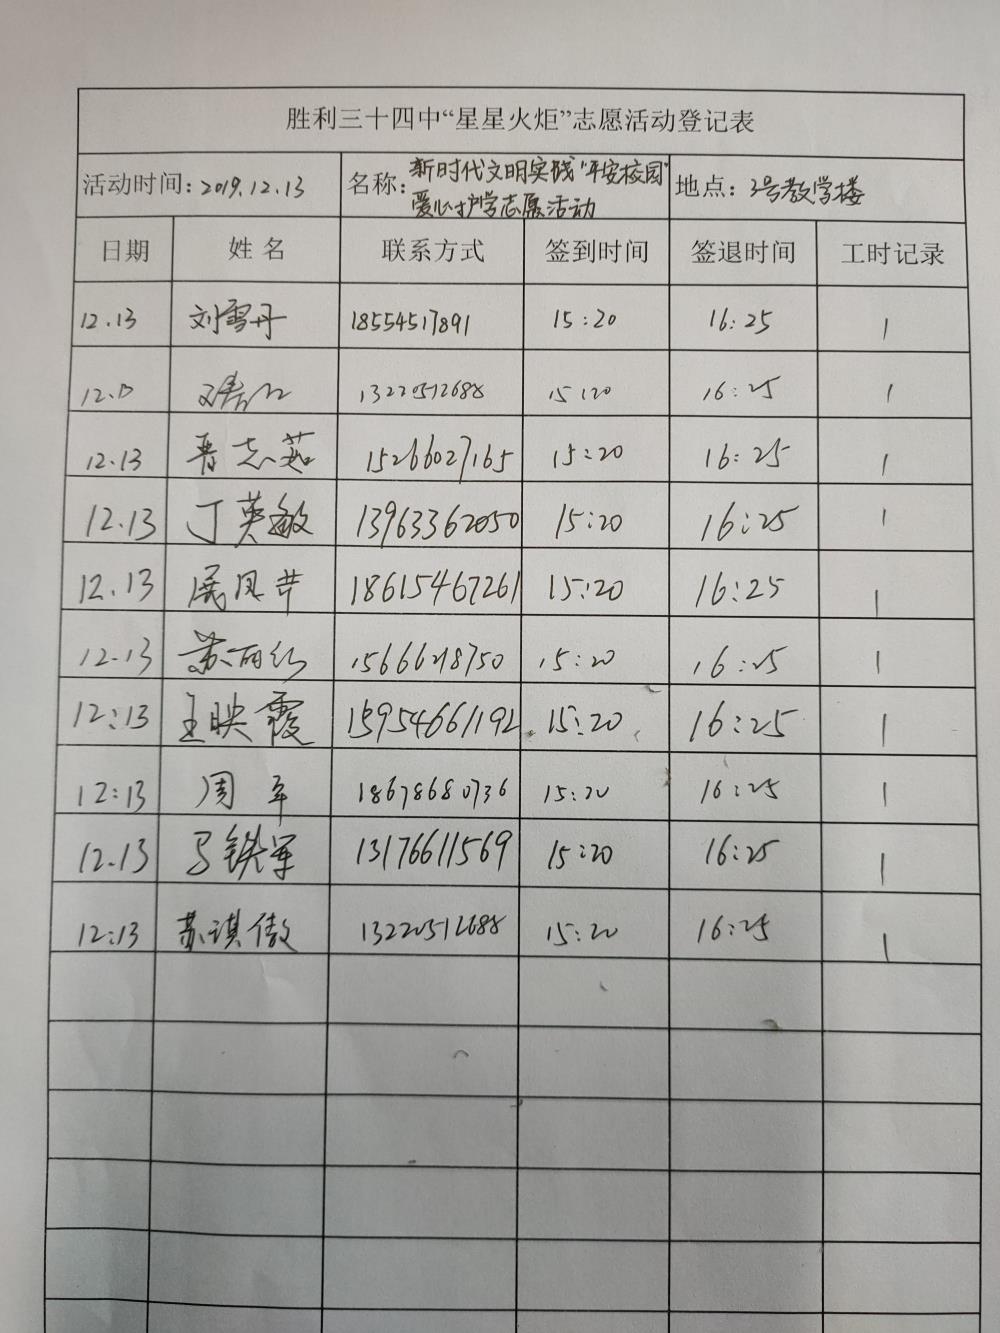 胜利三十四中“星星火炬”志愿活动登记表
活动时间：2019.12.13 名称：新时代文明实践“平安校园” 地点：3号教学楼
爱心护学志愿活动
日期 姓名 联系方式 签到时间 签退时间 工时记录
12.13 刘雪丹 18554517891 15:20 16:25 1
13220512688 15:20 16:25 1
12.13 晋志茹 15266027165 15:20 16:25 1
12.13 丁英敏 13963362050 15:20 16:25 1
12.13 展凤芹 18615467261 15:20 16:25 1
12.13 苏丽红 15666218750 15:20 16:25 1
12:13 王映霞 15954661192 15:20 16:25 1
12:13 周军 18678680736 15:20 16:25 1
12.13 马铁军 13176611569 15:20 16:25 1
12:13 苏祺傲 13220512688 15:20 16:25 1